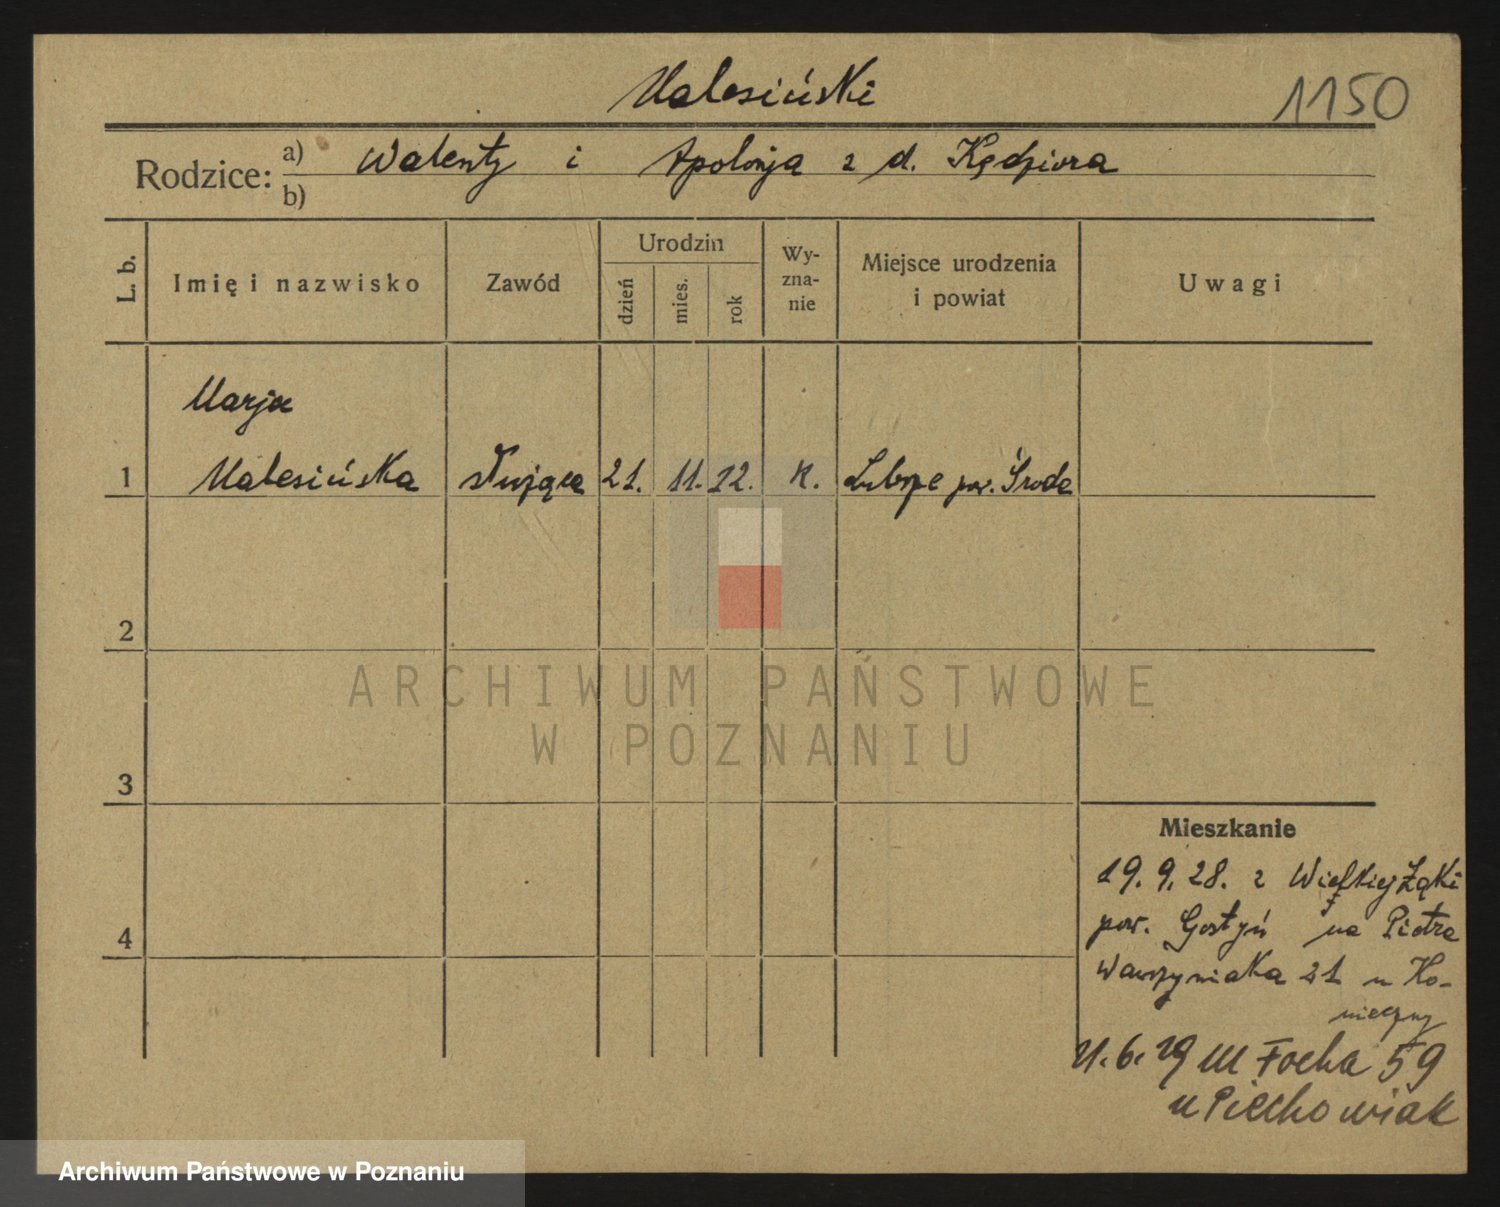 Malesiński
1150
Rodzice: a) Walenty i Apolonja z d. Kędziora
b)
L. b.
Imię i nazwisko
Zawód
Urodzin
dzień
mies.
rok
Wy-
zna-
nie
Miejsce urodzenia
i powiat
Uwagi
Marja
1 Malesińska służąca 21. 11. 12. K. pow. Środa
2
ARCHIWUM PAŃSTWOWE
W POZNANIU
3
Mieszkanie
19. 9. 28. z Wielkiej Łąki
4
pow. Gostyń na Piotra
Wawrzyniaka 21 u Ko-
nieczny
6. 29 M Focha 59
u Piechowiak
Archiwum Państwowe w Poznaniu